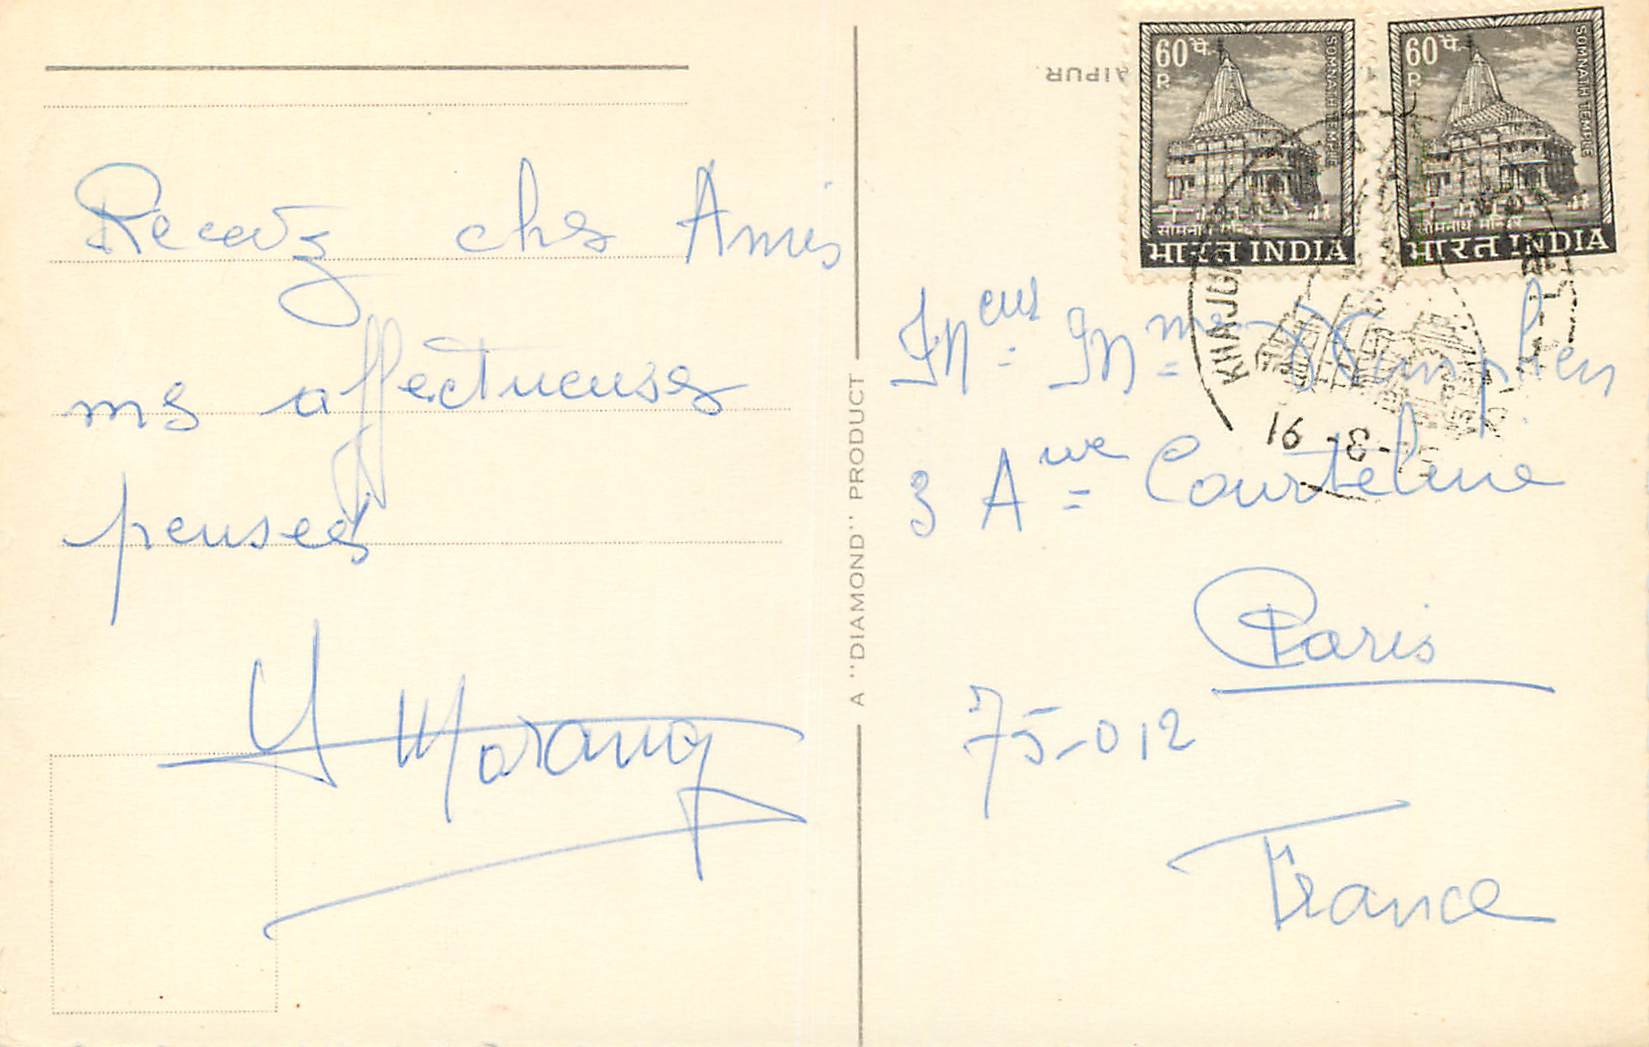 Recevez chs Amis
ms affectueuses
pensées
Y Morang
A "DIAMOND" PRODUCT
AIPUR
60 पै.
P.
SOMNATH TEMPLE
सोमनाथ मन्दिर
भारत INDIA
60 पै.
P.
SOMNATH TEMPLE
सोमनाथ मन्दिर
भारत INDIA
KHAJU
16-8-
Meur Mme
3 Anue Courteline
Paris
75-012
France